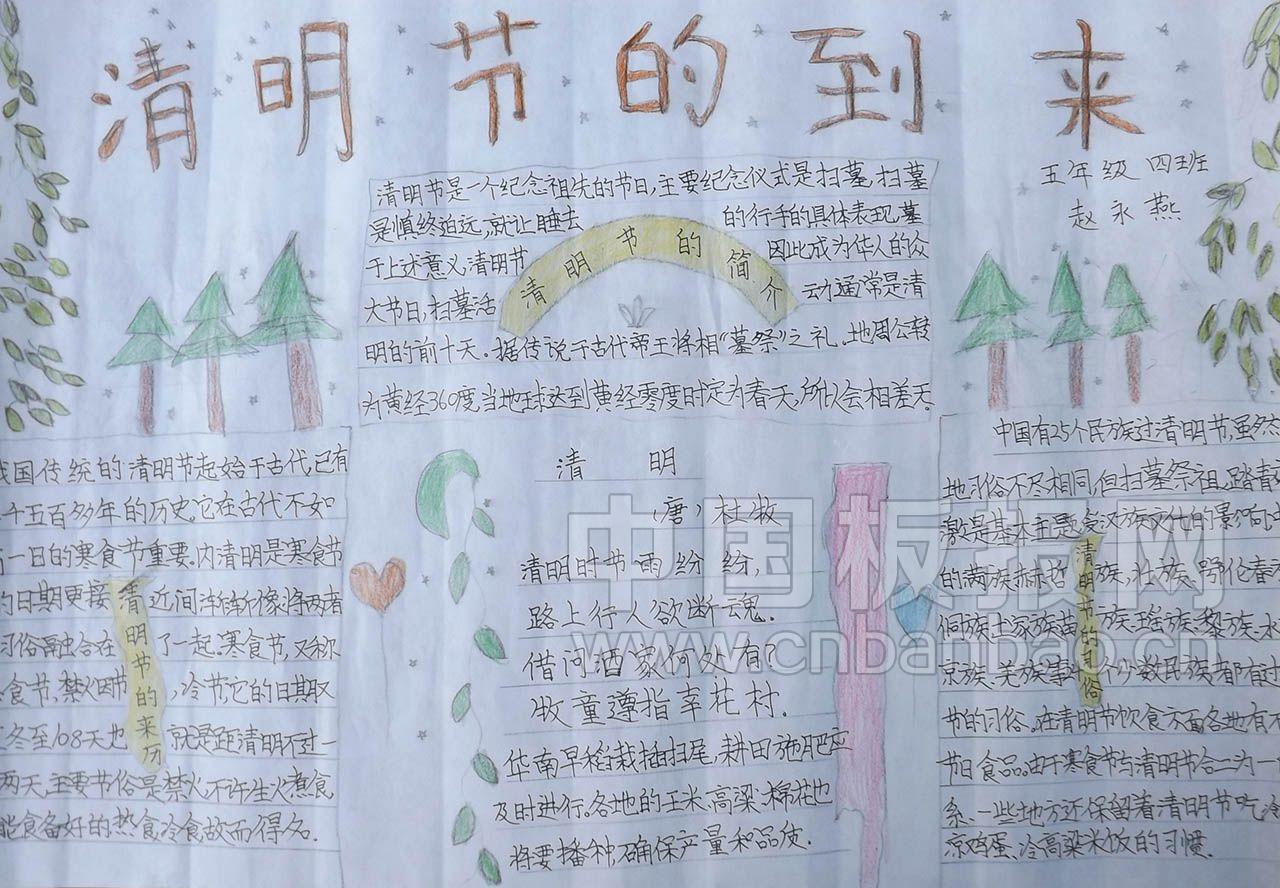 清明节的到来
五年级 四班
赵永燕
清明节是一个纪念祖先的节日,主要纪念仪式是扫墓,扫墓
是慎终追远,就让睡去的行孝的具体表现,基
于上述意义,清明节因此成为华人的众
大节日,扫墓活动通常是清
明的前十天.据传说于古代帝王将相"墓祭"之礼.地周公转
为黄经360度,当地球达到黄经零度时定为春天,所以会相差天.
清明节的简介
我国传统的清明节起始于古代,已有
千五百多年的历史,它在古代不如
一日的寒食节重要.内清明是寒食节
的日期更接近间渐渐像将两者
习俗融合在了一起.寒食节,又称
食节,禁火节,冷节,它的日期取
冬至108天也就是距清明不过一
两天,主要节俗是禁火,不许生火煮食
能食备好的热食冷食故而得名.
清明节的来历
清明
(唐)杜牧
清明时节雨纷纷,
路上行人欲断魂.
借问酒家何处有?
牧童遵指幸花村.
华南早稻栽插扫尾,耕田施肥应
及时进行.各地的玉米、高粱、棉花也
将要播种,确保产量和品皮.
中国有25个民族过清明节,虽然
地习俗不尽相同,但扫墓祭祖、踏青
是基本主题.受汉族文化的影响,
的满族赫哲族,壮族、鄂伦春
侗族土家族苗族、瑶族、黎族、水
京族、羌族等个少数民族都有过
节的习俗.在清明节饮食方面各地有
节日食品.由于寒食节与清明节合一为一
系.一些地方还保留着清明节吃冷
凉鸡蛋、冷高粱米饭的习惯.
清明节的习俗
中国板报网
www.cnbanbao.cn